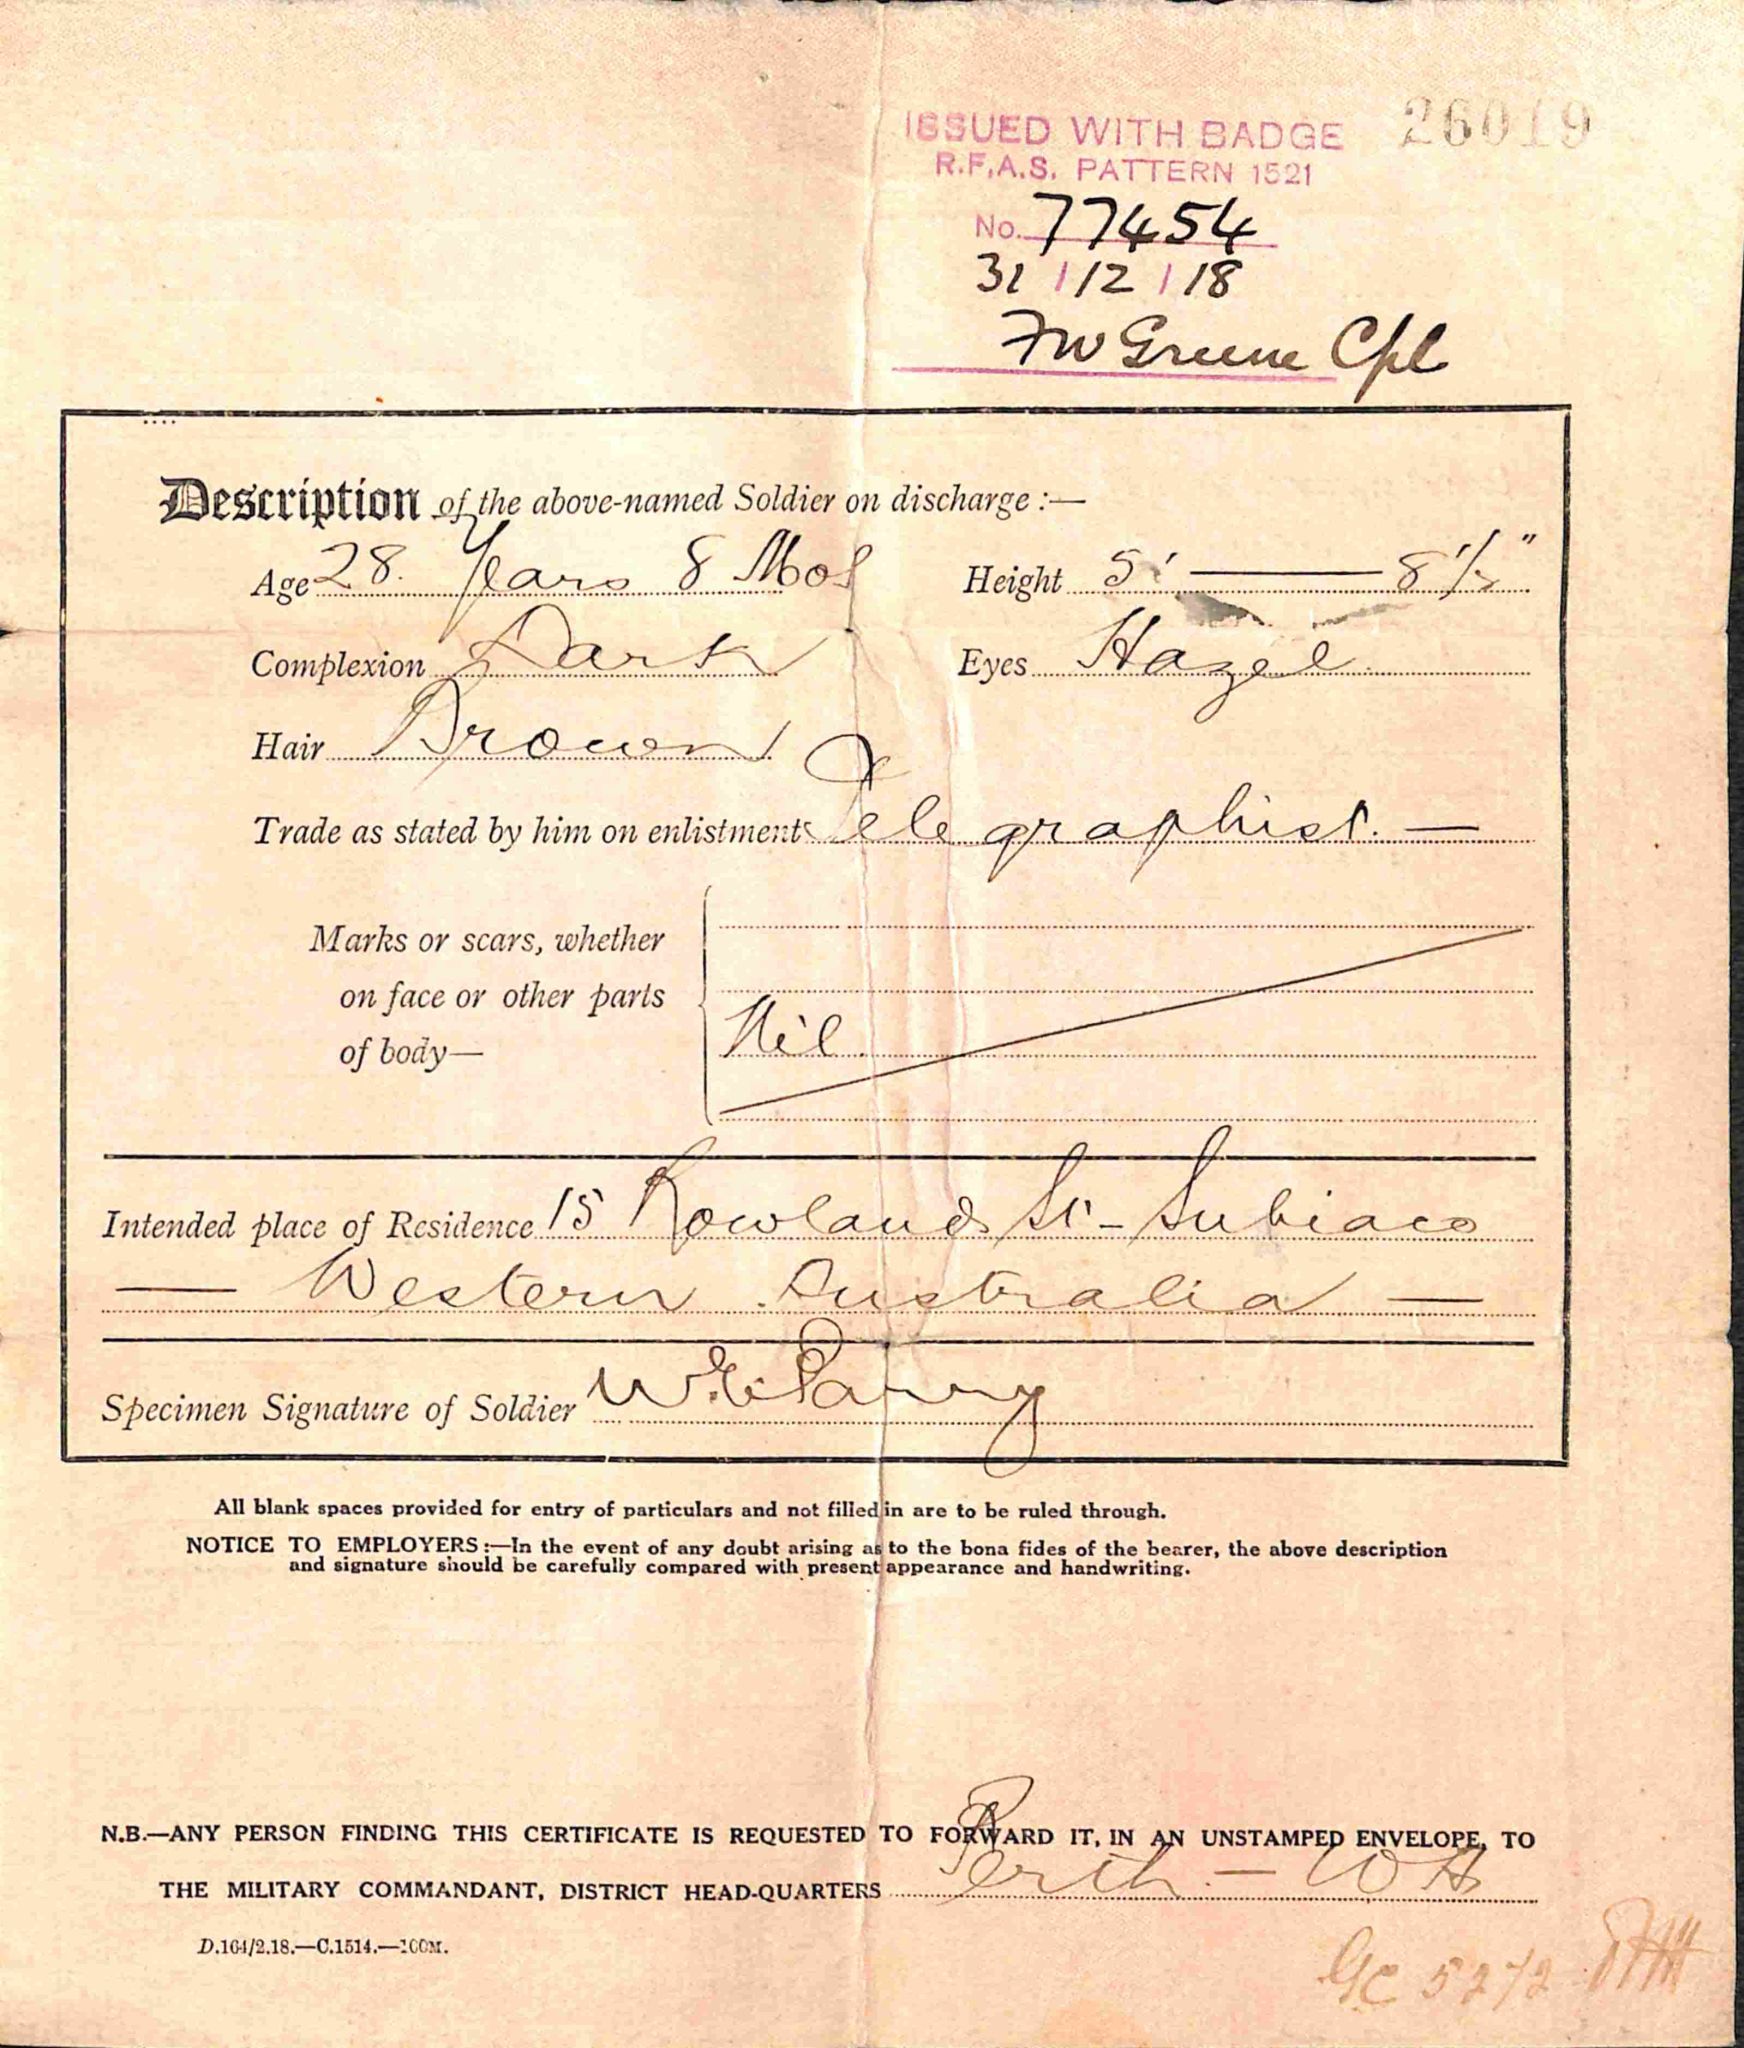 26019
ISSUED WITH BADGE
R.F.A.S. PATTERN 1521
No. 77454
31 / 12 / 18
FW Greene Cpl
Description of the above-named Soldier on discharge :—
Age 28 Years 8 Mos Height 5' — 8 1/2"
Complexion Dark Eyes Hazel
Hair Brown
Trade as stated by him on enlistment Telegraphist. —
Marks or scars, whether
on face or other parts
of body— Nil
Intended place of Residence 15 Rowland St - Subiaco
— Western Australia —
Specimen Signature of Soldier W.E. Parry
All blank spaces provided for entry of particulars and not filled in are to be ruled through.
NOTICE TO EMPLOYERS :—In the event of any doubt arising as to the bona fides of the bearer, the above description
and signature should be carefully compared with present appearance and handwriting.
N.B.—ANY PERSON FINDING THIS CERTIFICATE IS REQUESTED TO FORWARD IT, IN AN UNSTAMPED ENVELOPE, TO
THE MILITARY COMMANDANT, DISTRICT HEAD-QUARTERS Perth - WA
D.164/2.18.—C.1514.—100M.
GC 5272